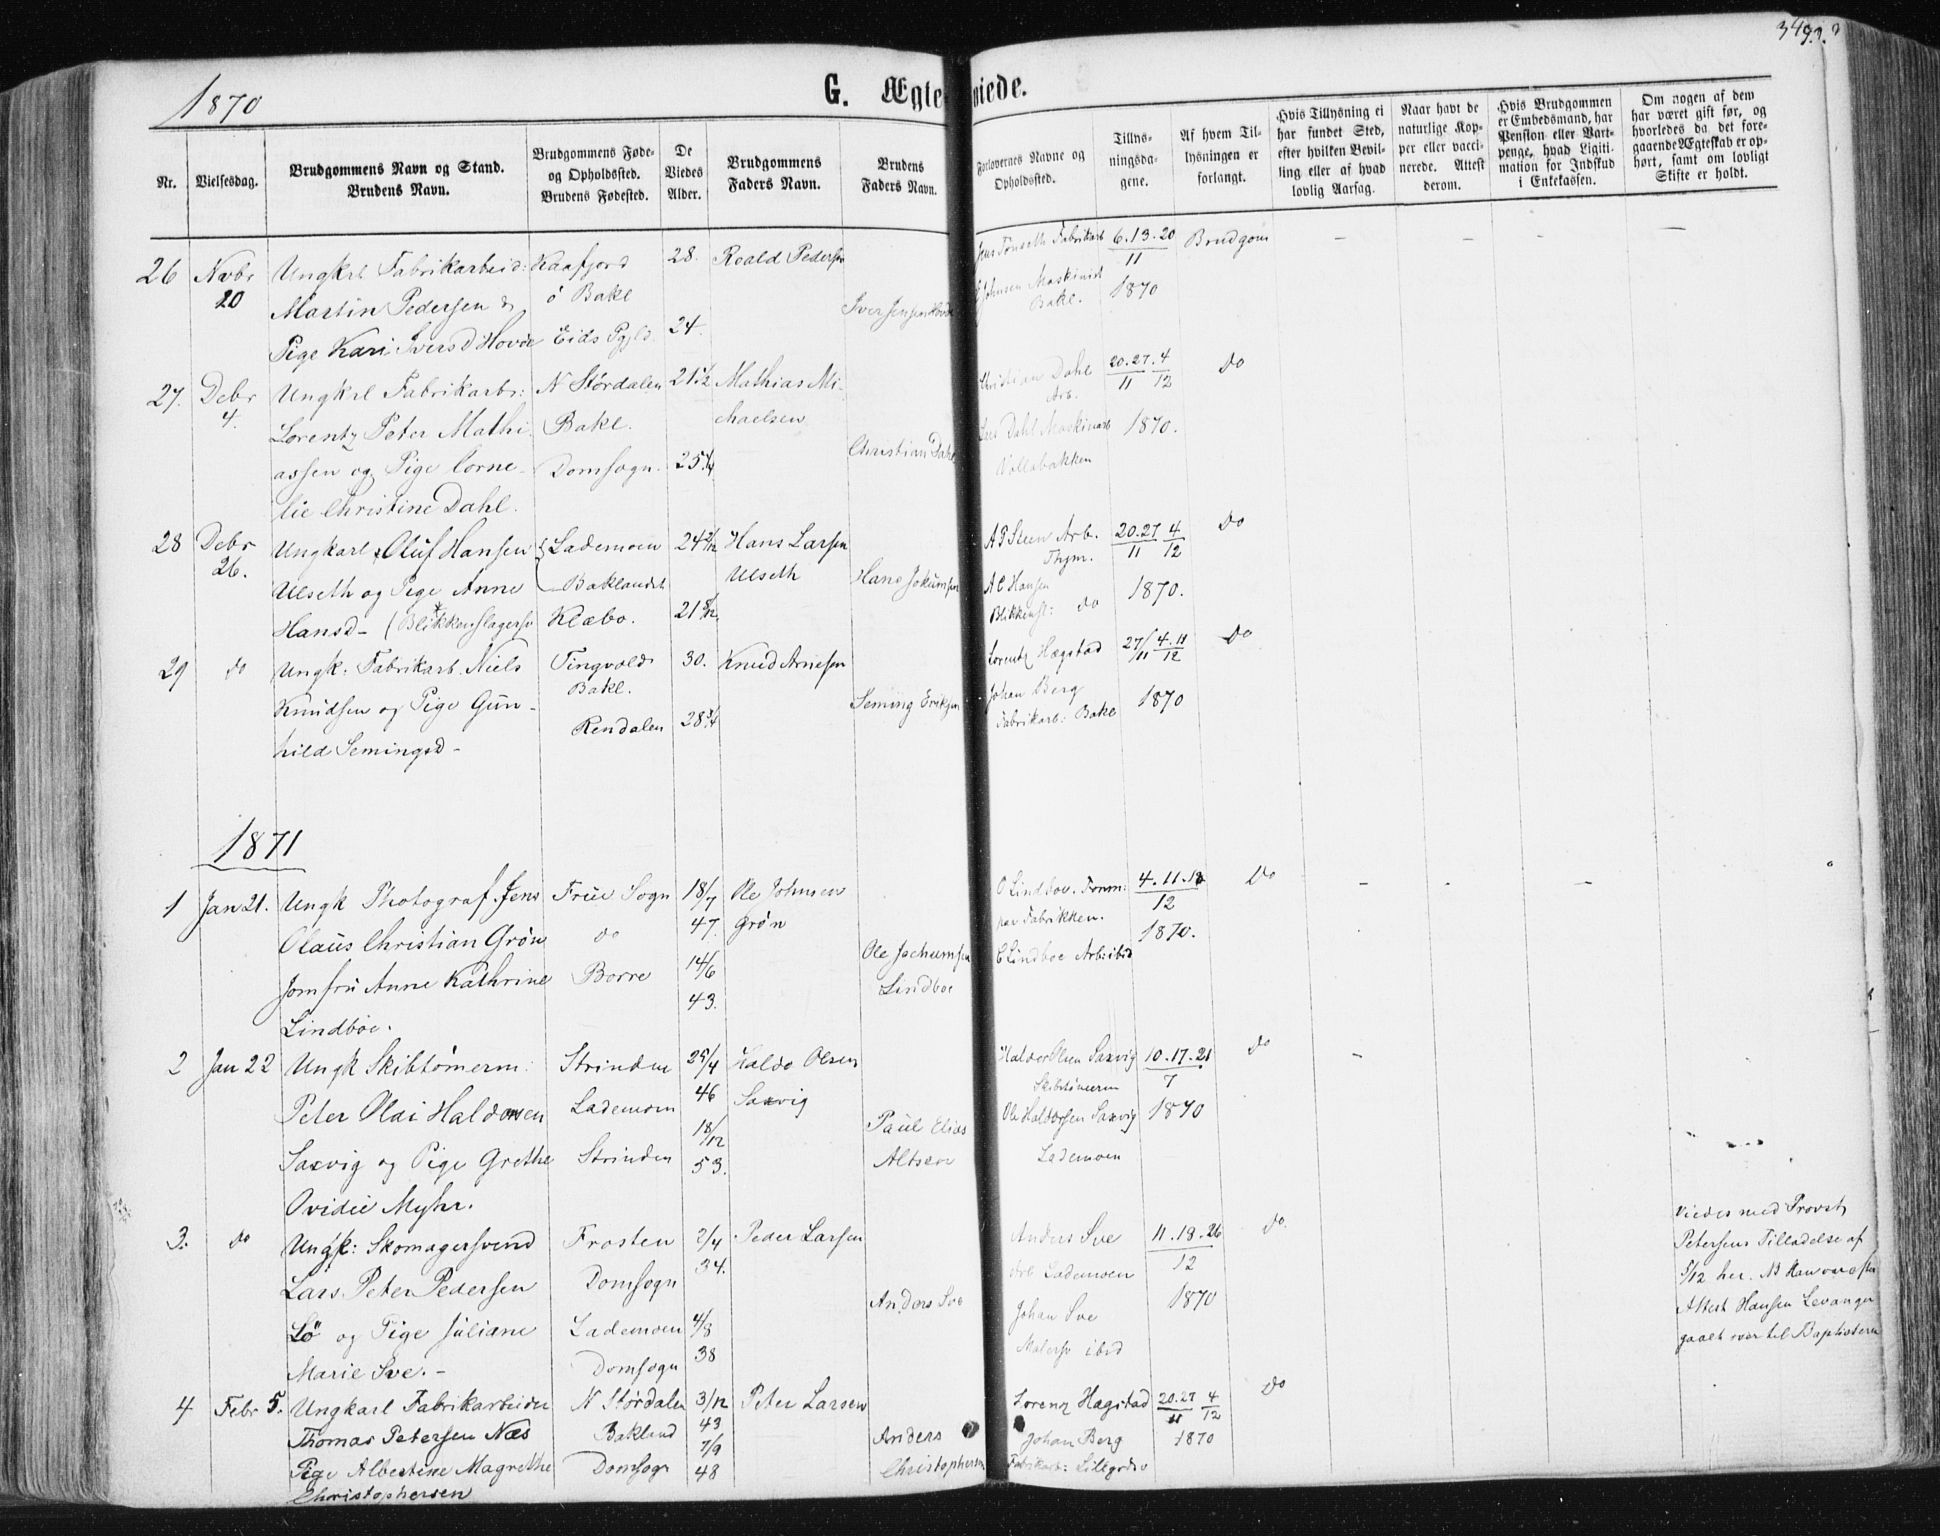 349
1870
G. Ægteviede.
Nr.
Vielsesdag.
Brudgommens Navn og Stand.
Brudens Navn.
Brudgommens Føde-
og Opholdsted.
Brudens Fødested.
De
Viedes
Alder.
Brudgommens
Faders Navn.
Brudens
Faders Navn.
Forlovernes Navne og
Opholdsted.
Tillys-
ningsda-
gene.
Af hvem Til-
lysningen er
forlangt.
Hvis Tillysning ei
har fundet Sted,
efter hvilken Bevil-
ling eller af hvad
lovlig Aarsag.
Naar havt de
naturlige Kop-
per eller vacci-
nerede. Attest
derom.
Hvis Brudgommen
er Embedsmand, har
Pension eller Vart-
penge, hvad Ligiti-
mation for Indskud
i Enkekassen.
Om nogen af dem
har været gift før, og
hvorledes da det fore-
gaaende Ægteskab er op-
hørt, samt om lovligt
Skifte er holdt.
26 Novbr 20
Ungkrl Fabrikarbeid:
Martin Pedersen &
Pige Kari Iversd Hovde
Kaafjord
ó Bakl
Eids Pgjld
28.
24.
Roald Pedersen
Iver Jensen Hovde
Jens Tønseth Fabrikarb
Johnsen Maskinist
Bakl.
6.13.20
11
1870
Brudgom
27. Debr 4.
Ungkrl Fabrikarb:
Lorentz Peter Mathi
assen og Pige Corne-
lie Christine Dahl.
N Stördalen
Bakl.
Domsogn.
21 1/2
25 1/4
Mathias Mi-
chaelsen
Christian Dahl
Christian Dahl
Arb.
Lars Dahl Maskinarb
Vollabakken
20.27. 4
11 12
1870.
do
28 Debr 26.
Ungkarl Oluf Hansen
Ulseth og Pige Anne
Hansd- (Blikkenslagersv
Lademoen
Baklandet
Klæbo.
24 2/12
21 8/12
Hans Larsen
Ulseth
Hans Jokumsen
A P Steen Arb.
Thjm.
A C Hansen
Blikkensl: do
20.27 4
11 12
1870.
Do
29 do
Ungk: Fabrikarb. Niels
Knudsen og Pige Gun-
hild Semingsd-
Tingvold
Bakl.
Rendalen
30.
28 3/4
Knud Arnesen
Seming Eriksen
Lorentz Hægstad
Johan Berg
Fabrikarb: Bakl
27/11 4.11/12
1870
Do
1871
1 Jan 21.
Ungk Photograf Jens
Olaus Christian Grøn
Jomfru Anne Kathrine
Lindboe.
Frue Sogn
do
Borre
18/7
47.
14/6
43.
Ole Johnsen
Grøn
Ole Jochumsen
Lindboe
O Lindboe. Formm:
paa Fabrikken.
C Lindboe Arb: ibid
4.11.18
12
1870.
Do
2 Jan 22
Ungk Skibtömerm:
Peter Olai Haldorsen
Saxvig og Pige Grethe
Ovidie Myhr.
Strinden
Lademoen
Strinden
25/4
46
18/12
53.
Haldo Olsen
Saxvig
Paul Elias
Altsen
Haldor Olsen Saxvig
Skibstömerm
Ole Haldorsen Saxvig
Lademoen
10.17.21
7
1870
do
3. do
Ungk: Skomagersvend
Lars Peter Pedersen
Lö og Pige Juliane
Marie Sve.-
Frosten
Domsogn
Lademoen
Domsogn
2/4
34.
4/8
38
Peder Larsen
Anders Sve
Anders Sve
Arb Lademoen
Johan Sve
Malersv ibid
11.18.26
12
1870
do.
Viedes med Provst
Petersens Tilladelse af
5/12 her. NB Han var efter
Attest Hansen Levanger
gaaet over til Baptisterne
4 Febr 5.
Ungkarl Fabrikarbeider
Thomas Petersen Næs
Pige Albertine Magrethe
Christophersen
N Stördalen
Bakland
Domsogn
3/12
43
7/9
48
Peter Larsen
Anders
Christophersen
Lorenz Hægstad
Johan Berg
Fabrikarb: Lillegrdsv
20.27 4
11 12
1870
Do